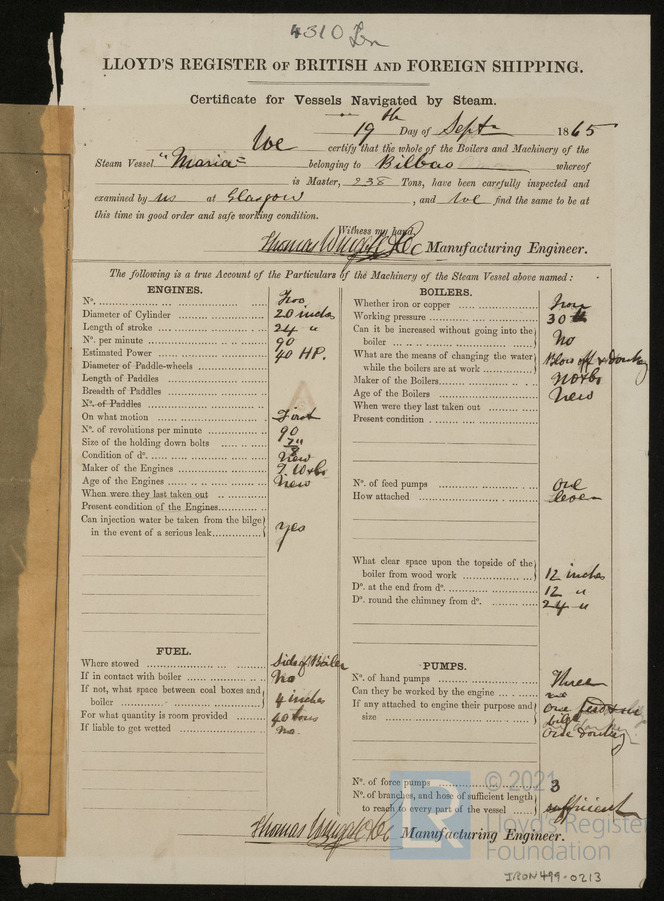 4310 Ln
LLOYD'S REGISTER OF BRITISH AND FOREIGN SHIPPING.
Certificate for Vessels Navigated by Steam.
19th Day of Sept 1865
We certify that the whole of the Boilers and Machinery of the
Steam Vessel "Maria" belonging to Bilbao whereof
is Master, 238 Tons, have been carefully inspected and
examined by us at Glasgow, and We find the same to be at
this time in good order and safe working condition.
Witness my hand,
Thomas Wingate & Co Manufacturing Engineer.
The following is a true Account of the Particulars of the Machinery of the Steam Vessel above named:
ENGINES.
No. Two
Diameter of Cylinder 20 inches
Length of stroke 24 "
No. per minute 90
Estimated Power 40 HP.
Diameter of Paddle-wheels
Length of Paddles
Breadth of Paddles
No. of Paddles
On what motion First
No. of revolutions per minute 90
Size of the holding down bolts 7/8"
Condition of do. New
Maker of the Engines T. W & Co
Age of the Engines New
When were they last taken out
Present condition of the Engines
Can injection water be taken from the bilge
in the event of a serious leak yes
FUEL.
Where stowed Side of Boiler
If in contact with boiler No
If not, what space between coal boxes and
boiler 4 inches
For what quantity is room provided 40 tons
If liable to get wetted no.
BOILERS.
Whether iron or copper Iron
Working pressure 30 lb
Can it be increased without going into the
boiler No
What are the means of changing the water
while the boilers are at work Blow off & donkey
Maker of the Boilers W & Co
Age of the Boilers New
When were they last taken out
Present condition
No. of feed pumps One
How attached lever
What clear space upon the topside of the
boiler from wood work 12 inches
Do. at the end from do. 12 "
Do. round the chimney from do. 24 "
PUMPS.
No. of hand pumps Three
Can they be worked by the engine
If any attached to engine their purpose and
size One feed &
bilge
One donkey
No. of force pumps 3
No. of branches, and hose of sufficient length
to reach to every part of the vessel sufficient
Thomas Wingate & Co Manufacturing Engineer.
© 2021
Lloyd's Register
Foundation
IRON499-0213